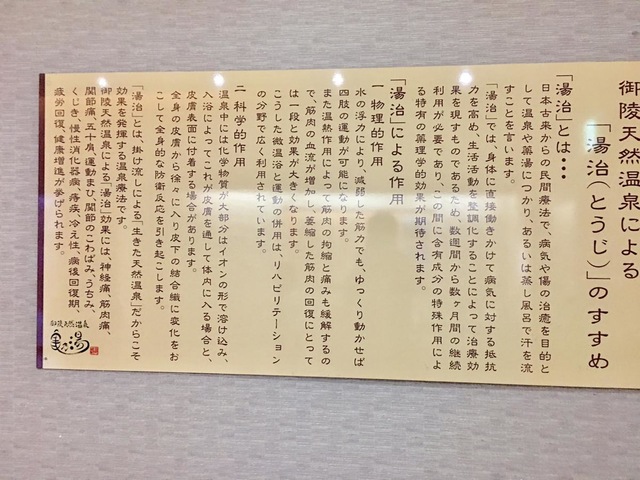 御陵天然温泉による
「湯治(とうじ)」のすすめ
「湯治」とは・・・
日本古来からの民間療法で、病気や傷の治癒を目的と
して温泉や薬湯につかり、あるいは蒸し風呂で汗を流
すことを言います。
「湯治」では、身体に直接働きかけて病気に対する抵抗
力を高め、生活活動を整調化することによって治療効
果を現すものであるため、数週間から数ヶ月間の継続
利用が必要であり、この間に含有成分の特殊作用によ
る特有の薬理学的効果が期待されます。
「湯治」による作用
一 物理的作用
水の浮力により、減弱した筋力でも、ゆっくり動かせば
四肢の運動が可能になります。
また温熱作用によって筋肉の拘縮と痛みも緩解するの
で、筋肉の血流が増加し、萎縮した筋肉の回復にとって
は一段と効果が大きくなります。
こうした微温浴と運動の併用は、リハビリテーション
の分野で広く利用されています。
二 科学的作用
温泉中には化学物質が大部分はイオンの形で溶け込み、
入浴によってこれが皮膚を通して体内に入る場合と、
皮膚表面に付着する場合があります。
全身の皮膚から徐々に入り皮下の結合織に変化をお
こして全身的な防衛反応を引き起こします。
「湯治」とは、掛け流しによる「生きた天然温泉」だからこそ
効果を発揮する温泉療法です。
御陵天然温泉による「湯治」効果には、神経痛、筋肉痛、
関節痛、五十肩、運動まひ、関節のこわばみ、うちみ、
くじき、慢性消化器病、痔疾、冷え性、病後回復期、
疲労回復、健康増進が挙げられます。
御陵天然温泉
湯